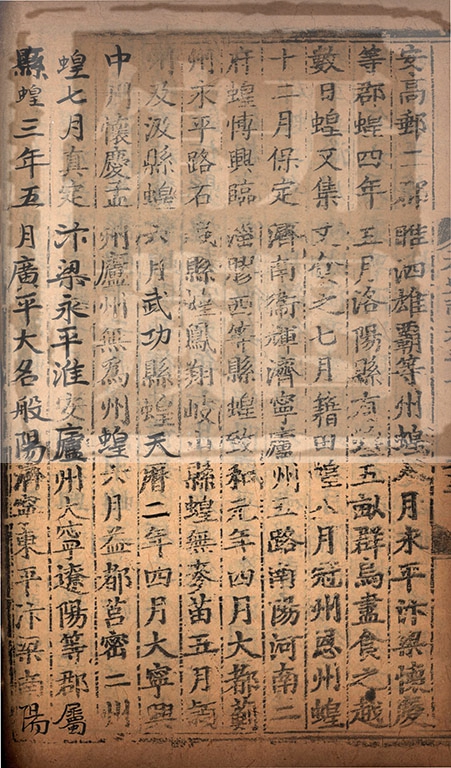 安高郵二郡睢泗雄霸等州蝗六月永平汴梁懷慶
等郡蝗四年五月洛陽縣有蝗五畝群烏盡食之越
數日蝗又集又食之七月籍田蝗八月冠州恩州蝗
十二月保定濟南衞輝濟寧廬州五路南陽河南二
府蝗博興臨淄膠西等縣蝗致和元年四月大都薊
州永平路石城縣蝗鳳翔岐山縣蝗無麥苗五月潁
州及汲縣蝗六月武功縣蝗天曆二年四月大寧興
中州懷慶孟州廬州無爲州蝗六月益都莒密二州
蝗七月真定汴梁永平淮安廬州大寧遼陽等郡屬
縣蝗三年五月廣平大名般陽濟寧東平汴梁南陽